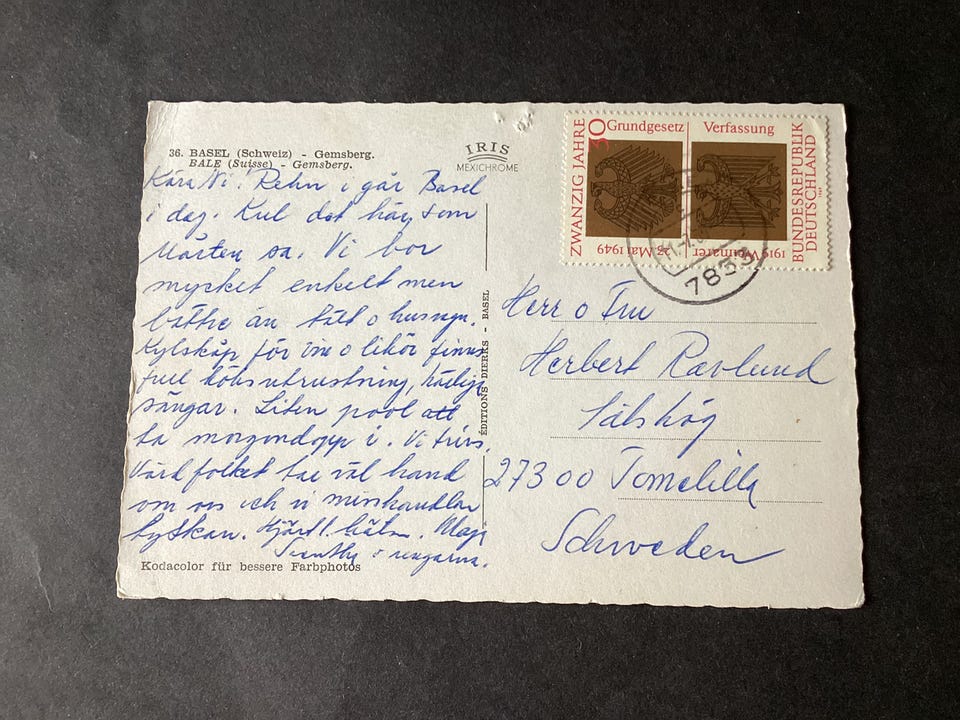 36. BASEL (Schweiz) - Gemsberg.
BALE (Suisse) - Gemsberg.
IRIS
MEXICHROME
Kära Ni! Rehn i går Basel
i dag. Kul det här, som
Mårten sa. Vi bor
mycket enkelt men
bättre än tält o husvgn.
Kylskåp för vin o likör finns
full köksutrustning, härliga
sängar. Liten pool att
ta morgondopp i. Vi trivs.
Värdfolket tar väl hand
om oss och vi misshandlar
tyskan. Hjärtl. hälsn.
o ungarna.
Kodacolor für bessere Farbphotos
ÉDITIONS DIERKS - BASEL
ZWANZIG JAHRE
30
Grundgesetz
Verfassung
23. Mai 1949
1919 Weimarer
BUNDESREPUBLIK
DEUTSCHLAND
1969
7853
Herr o Fru
Herbert Ravlund
Sälshög
27300 Tomelilla
Schweden